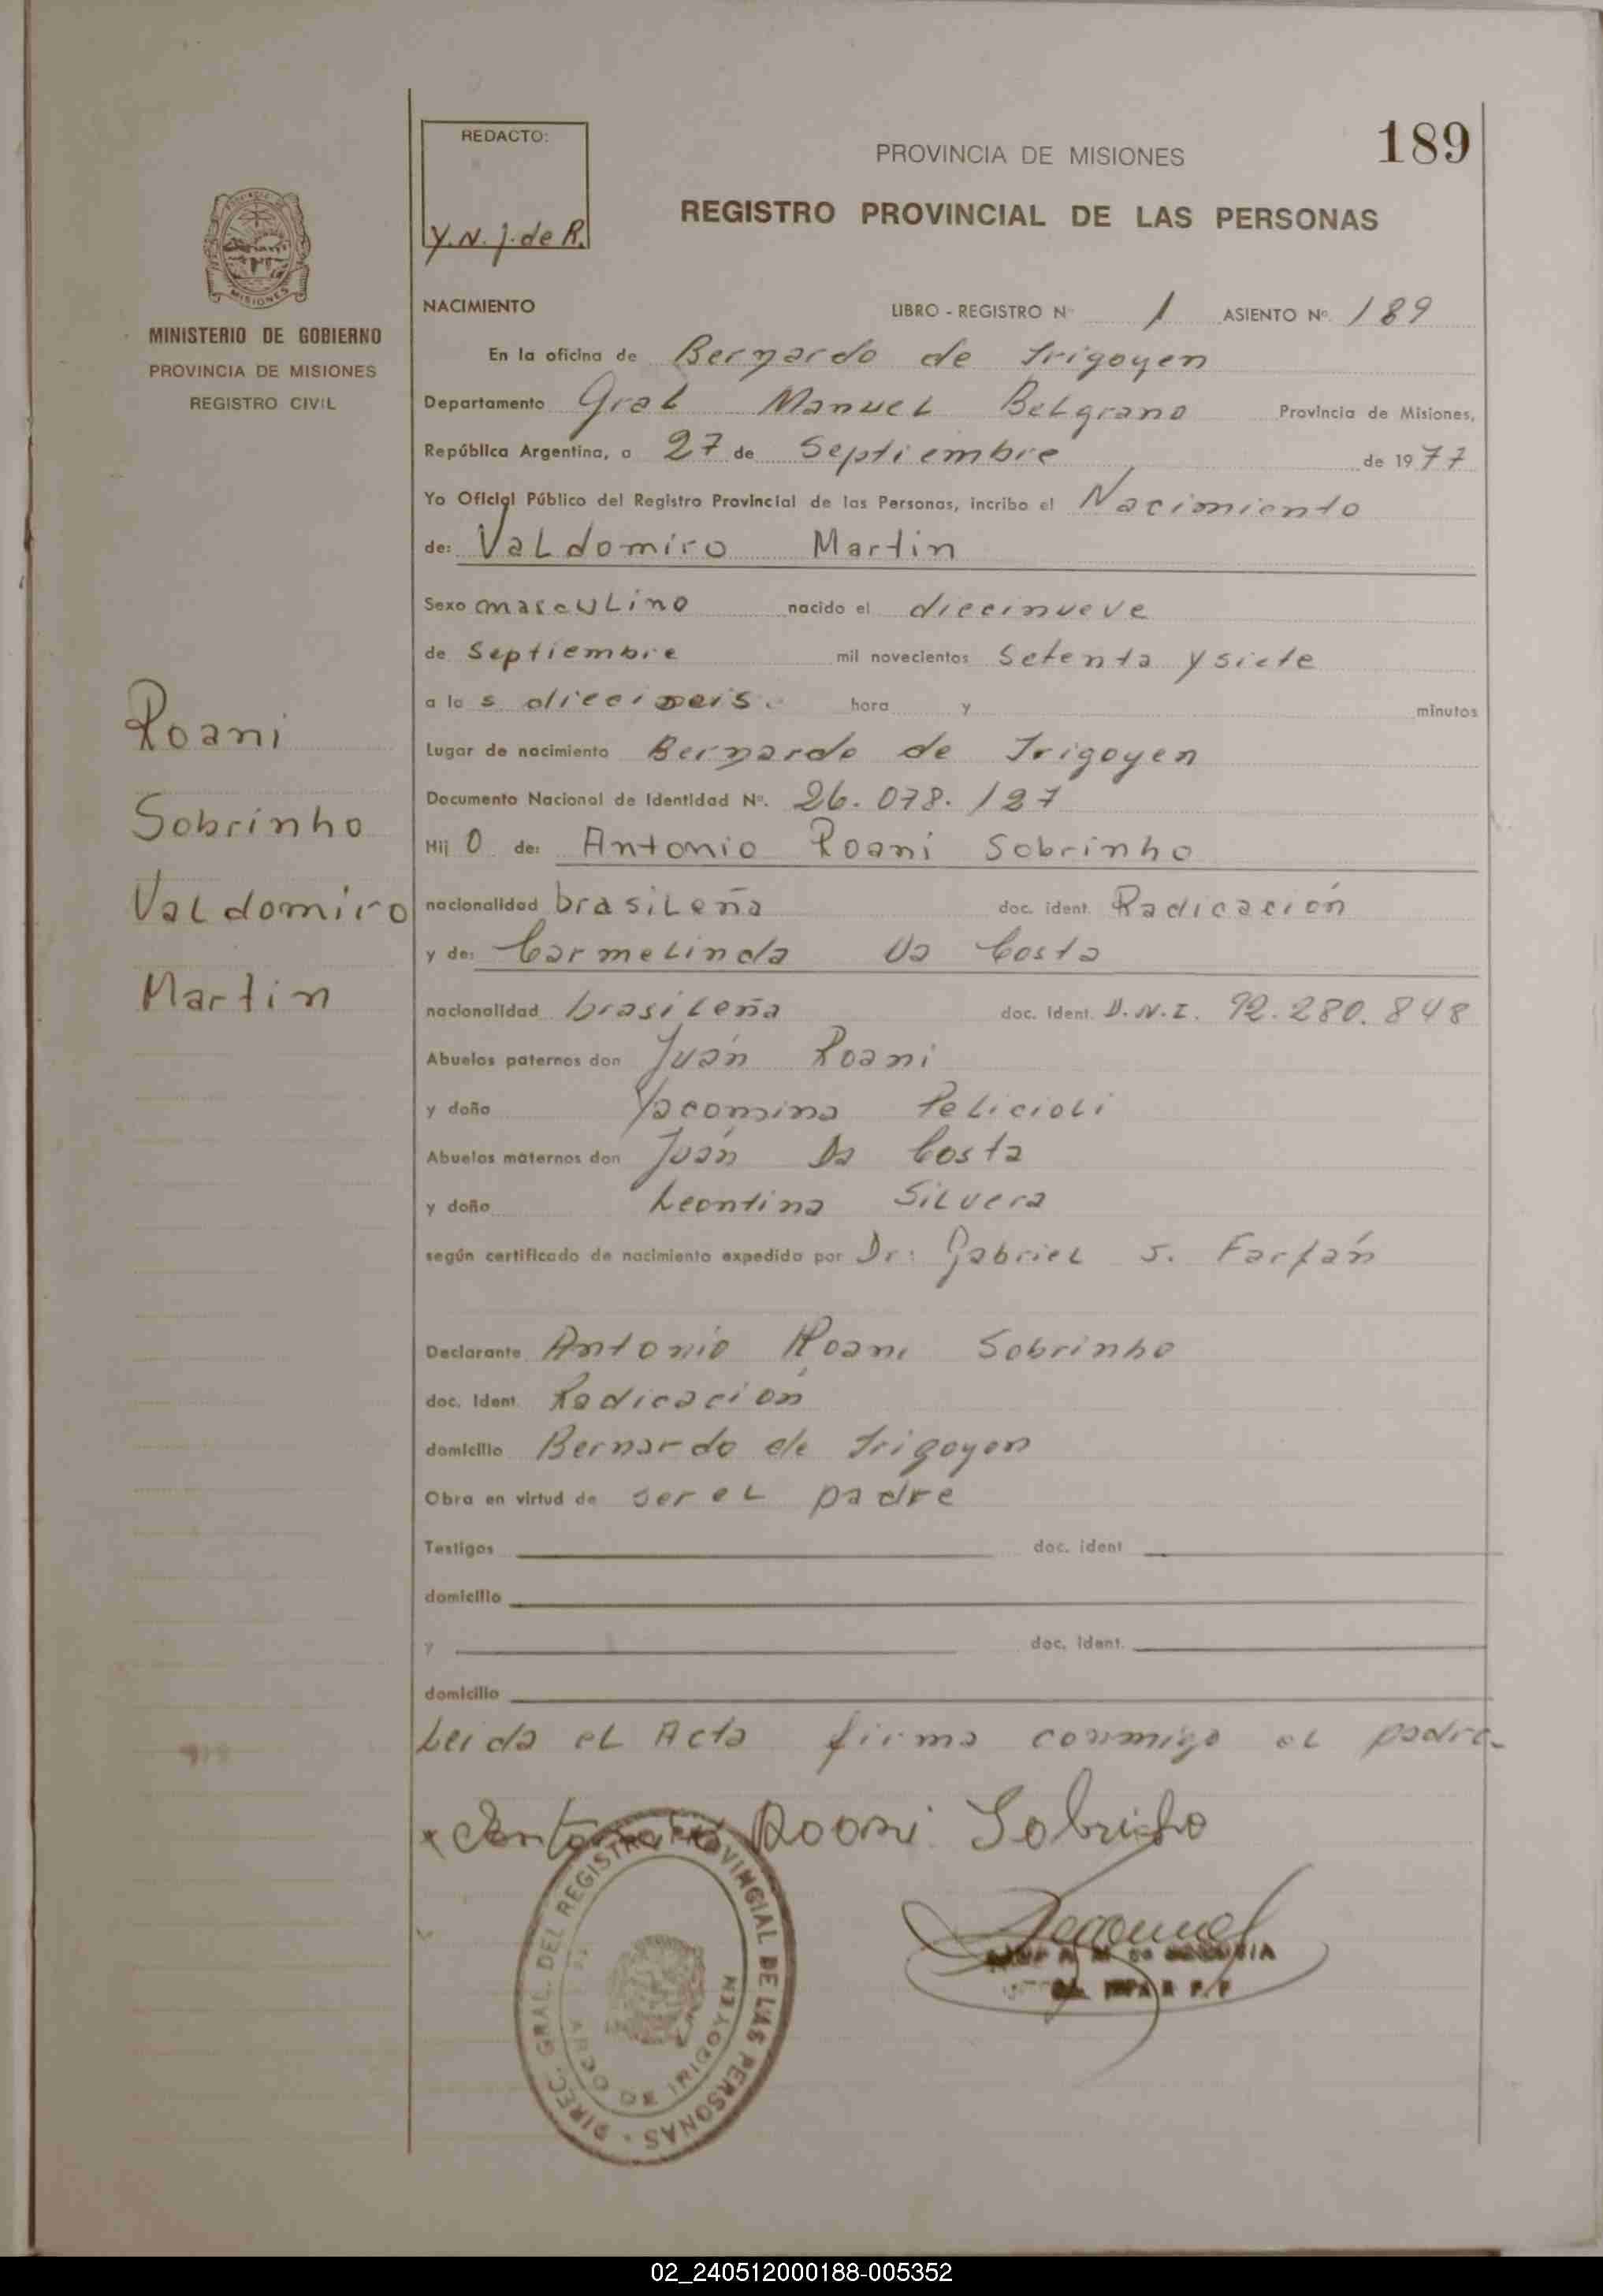 189
REDACTO:
Y.N.J. de R.
PROVINCIA DE MISIONES
REGISTRO PROVINCIAL DE LAS PERSONAS
MISIONES
MINISTERIO DE GOBIERNO
PROVINCIA DE MISIONES
REGISTRO CIVIL
NACIMIENTO LIBRO - REGISTRO Nº 1 ASIENTO Nº 189
En la oficina de Bernardo de Irigoyen
Departamento Gral Manuel Belgrano Provincia de Misiones,
República Argentina, a 27 de Septiembre de 1977
Yo Oficial Público del Registro Provincial de las Personas, incribo el Nacimiento
de: Valdomiro Martin
Sexo masculino nacido el diecinueve
de Septiembre mil novecientos Setenta y siete
a las dieciseis hora y minutos
Lugar de nacimiento Bernardo de Irigoyen
Documento Nacional de Identidad Nº. 26.078.127
Hijo de: Antonio Roani Sobrinho
nacionalidad brasileña doc. ident. Radicación
y de: Carmelinda Da Costa
nacionalidad brasileña doc. ident. D.N.I. 92.280.848
Abuelos paternos don Juán Roani
y doña Yacomina Pelicioli
Abuelos maternos don Juán Da Costa
y doña Leontina Silvera
según certificado de nacimiento expedido por Dr: Gabriel S. Farfán
Declarante Antonio Roani Sobrinho
doc. ident. Radicación
domicilio Bernardo de Irigoyen
Obra en virtud de ser el padre
Testigos doc. ident
domicilio
y doc. ident.
domicilio
Leida el Acta firma conmigo el padre-
Roani
Sobrinho
Valdomiro
Martin
x Antonio Roani Sobrinho
DIREC. GRAL. DEL REGISTRO PROVINCIAL DE LAS PERSONAS
DE IRIGOYEN
02_240512000188-005352